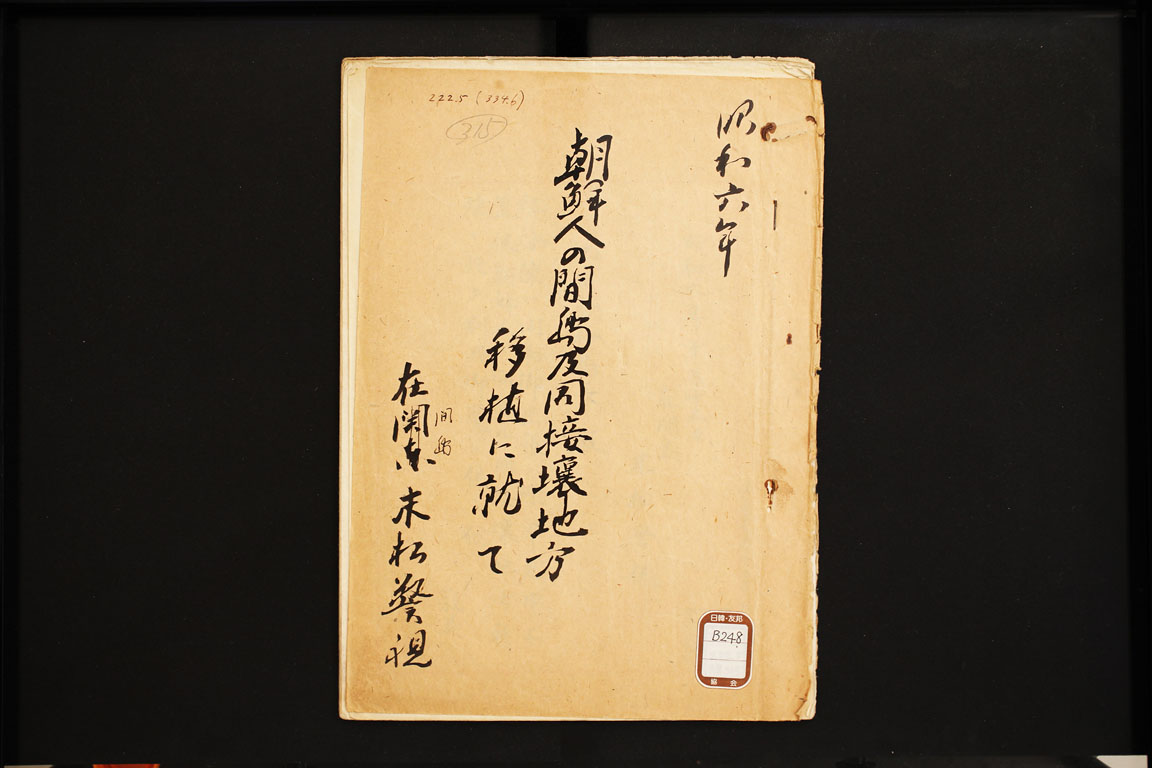 昭和六年
朝鮮人の間島及同接壌地方
移植に就て
在関東 末松警視
間島
222.5 (334.6)
315
日韓・友邦
B248
協会